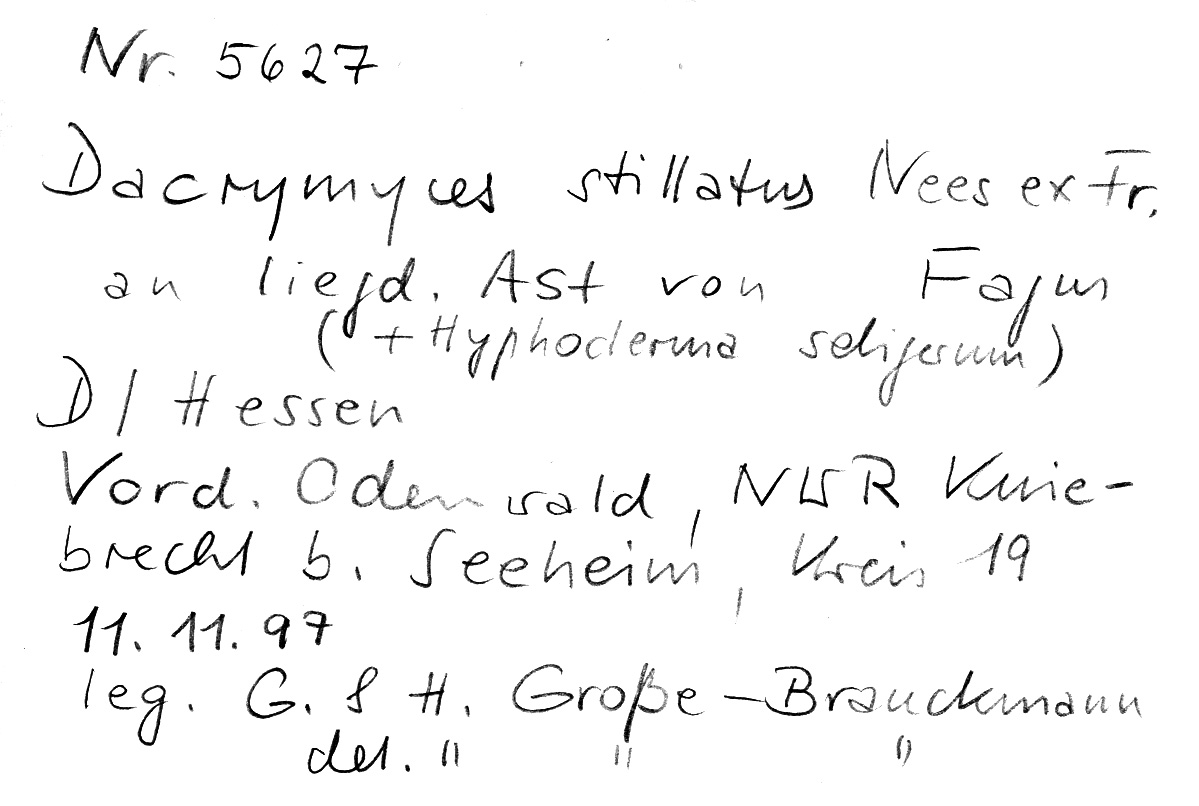 Nr. 5627
Dacrymyces stillatus Nees ex Fr.
an liegd. Ast von Fagus
(+ Hyphoderma setigerum)
D/Hessen
Vord. Odenwald, NWR Knie-
brecht b. Seeheim, Kreis 19
11. 11. 97
leg. G. & H. Große-Brauckmann
det. " " "